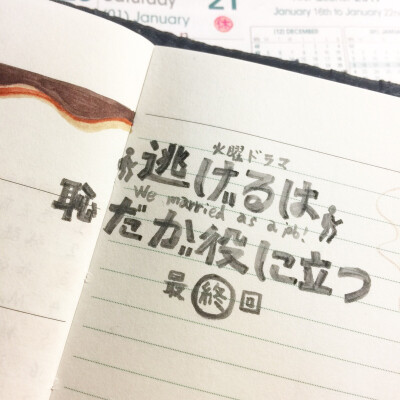 Saturday
21
January 16th to January 22n
火曜ドラマ
逃げるは
We married as a job!
恥だが役に立つ
最終回